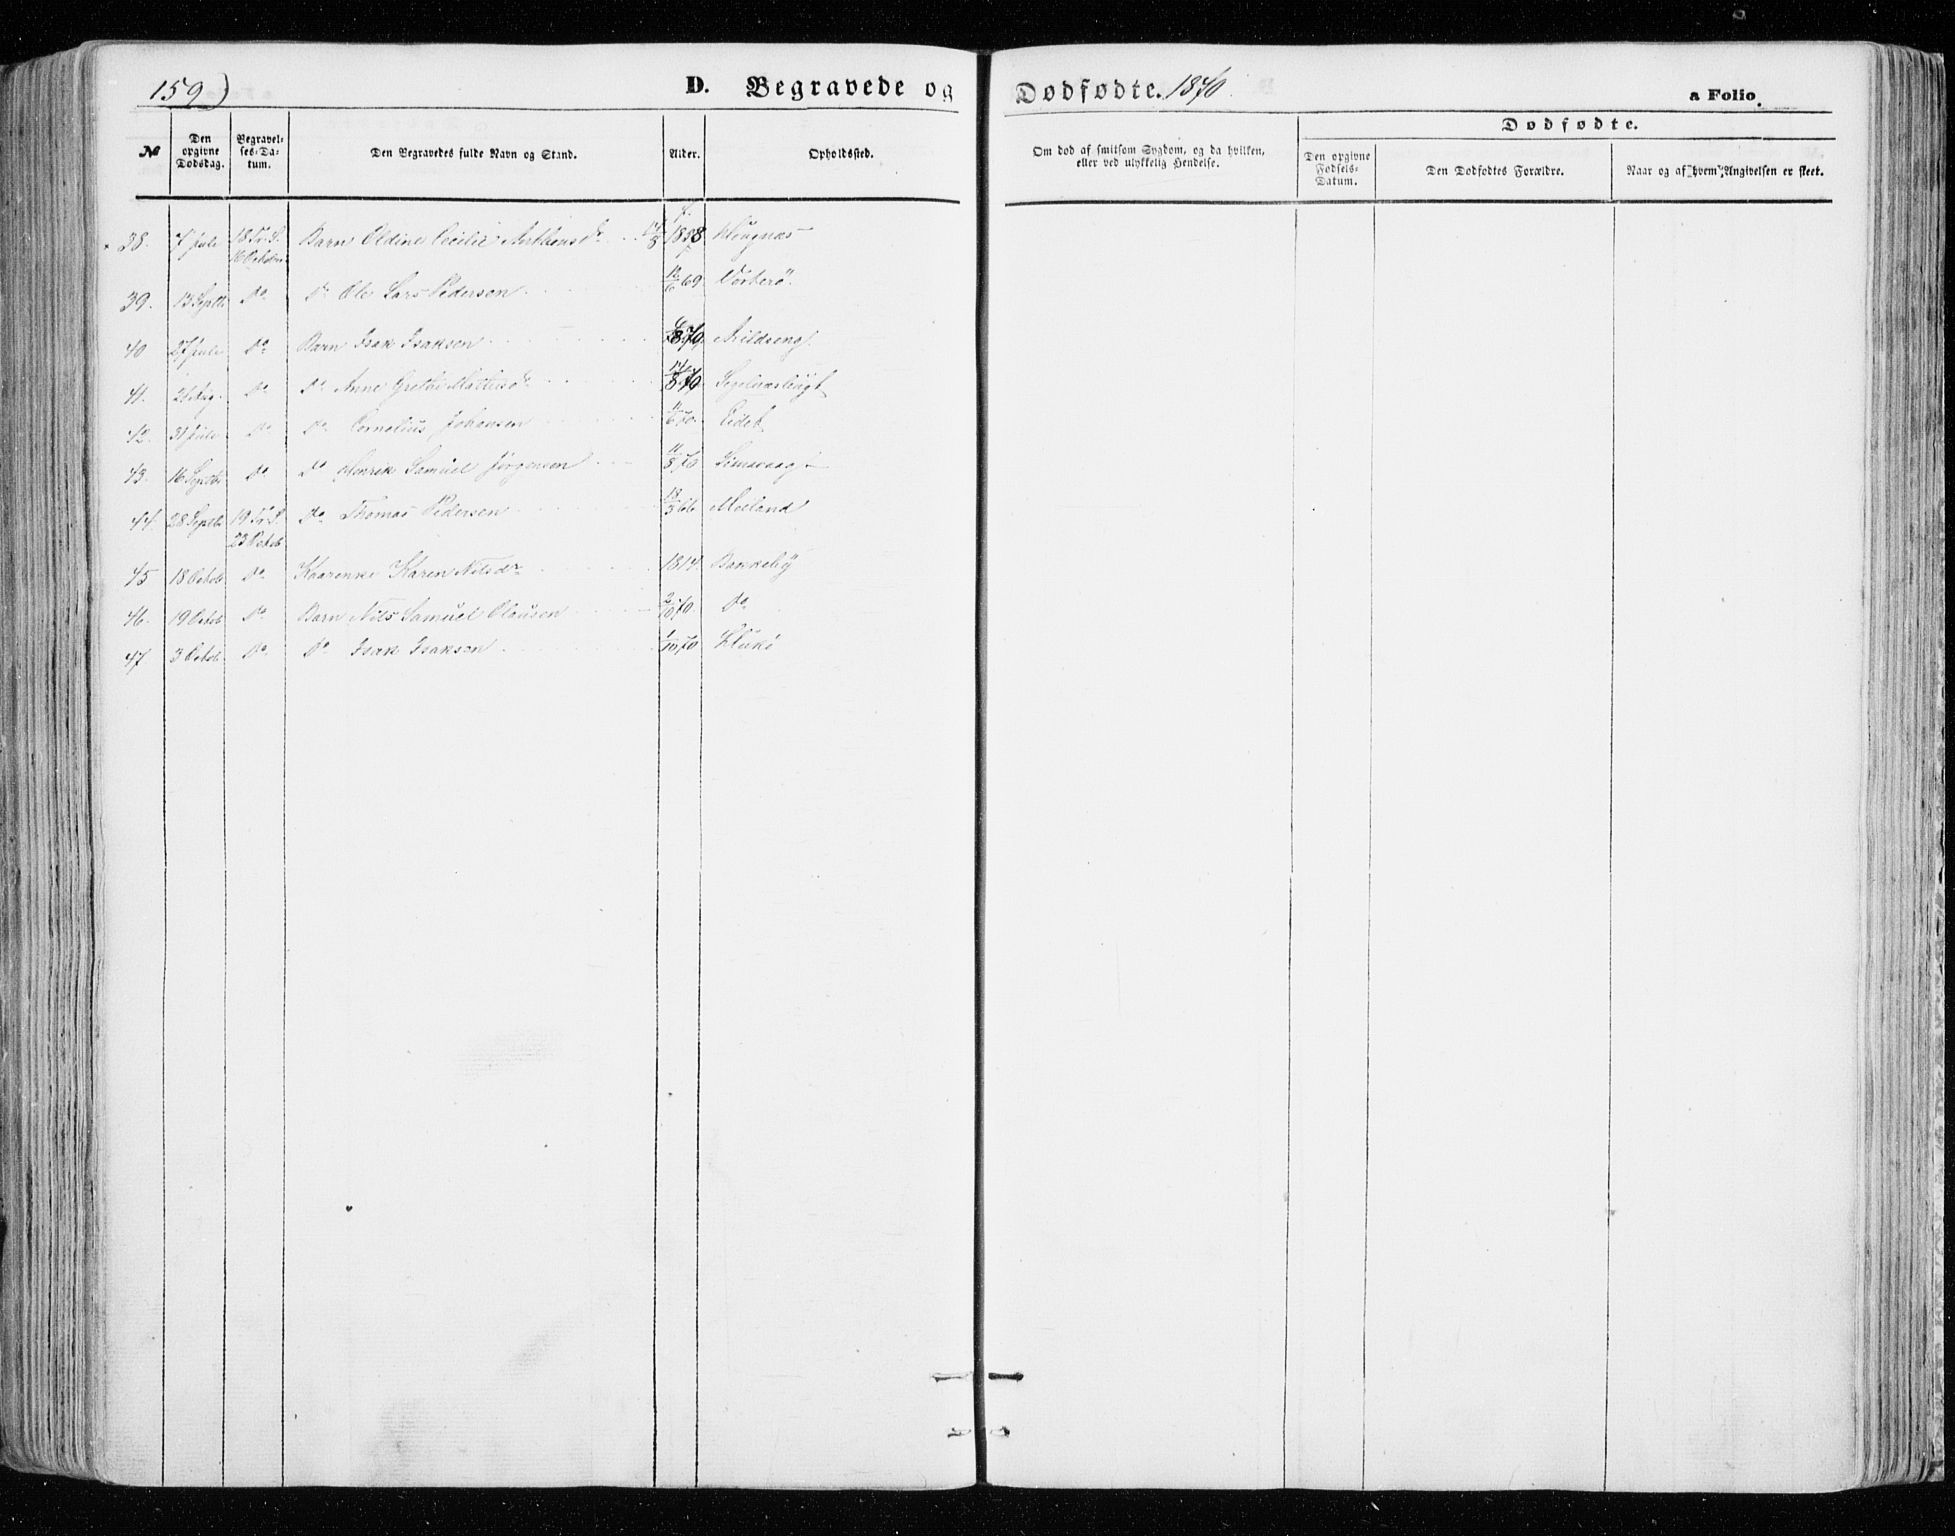 159)
D. Begravede og
Dødfødte. 1870.
a Folio.
№
Den opgivne Dødsdag.
Begravelses-Datum.
Den Begravedes fulde Navn og Stand.
Alder.
Opholdssted.
Om død af smitsom Sygdom, og da hvilken, eller ved ulykkelig Hendelse.
Dødfødte.
Den opgivne Fødsels-Datum.
Den Dødfødtes Forældre.
Naar og af hvem Angivelsen er skeet.
38. 7 Juli 18 Tr. S. 16 Octbr Barn Oldine Cecilie
39. 13 Septbr Do Do Ole Lars Pedersen 69
40 27 Juli Do Barn Isak Isaksen 1870
41. Aug. Do Do Anne Grethe 70
42. 31 Juli Do Do Cornelius Johansen 70. Eidet
43. 16 Septbr Do Do Henrik Samuel Jørgensen 11/8 70
44. 28 Septb 19 Tr. S. 23 Octob Do Thomas Pedersen 66 Meiland
45 18 Octob Do Karen Nilsdr 1814 Bakkeby
46. 19 Octob Do Barn Nils Samuel Olausen 2/10 70. Do
47 3 Octob Do Do Isak Isaksen 1/10 70